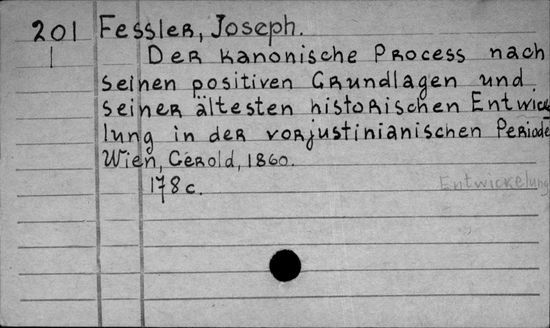 201 Fessler, Joseph.
1 Der kanonische Process nach
seinen positiven Grundlagen und
seiner ältesten historischen Entwicke
lung in der vorjustinianischen Periode
Wien, Gerold, 1860.
178 c.
Entwickelung